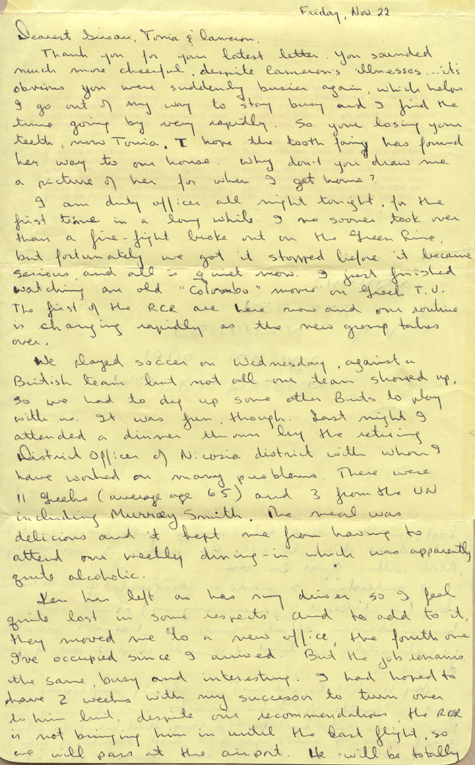 Friday, Nov 22
Dearest Susan, Tonia & Cameron.
Thank you for your latest letter. You sounded
much more cheerful, despite Cameron's illnesses... it's
obvious you were suddenly busier again, which helps.
I go out of my way to stay busy and I find the
time going by very rapidly. So you losing your
teeth, now Tonia. I hope the tooth fairy has found
her way to our house. Why don't you draw me
a picture of her for when I get home?
I am duty officer all night tonight, for the
first time in a long while. I no sooner took over
than a fire-fight broke out on the Green Line,
but fortunately we got it stopped before it became
serious, and all is quiet now. I just finished
watching an old "Colombo" movie on Greek T.V.
The first of the RCR are here now and our routine
is changing rapidly as the new group takes
over.
We played soccer on Wednesday, against a
British team but not all our team showed up,
so we had to dig up some other Brits to play
with us. It was fun, though. Last night I
attended a dinner thrown by the retiring
District Officer of Nicosia district with whom I
have worked on many problems. There were
11 Greeks (average age 65) and 3 from the UN
including Murray Smith. The meal was
delicious and it kept me from having to
attend our weekly dining-in which was apparently
quite alcoholic.
Ken has left as has my driver, so I feel
quite lost in some respects. And to add to it,
they moved me to a new office, the fourth one
I've occupied since I arrived. But the job remains
the same, busy and interesting. I had hoped to
have 2 weeks with my successor to turn over
to him but, despite our recommendation, the RCR
is not bringing him in until the last flight, so
we will pass at the airport. He will be totally